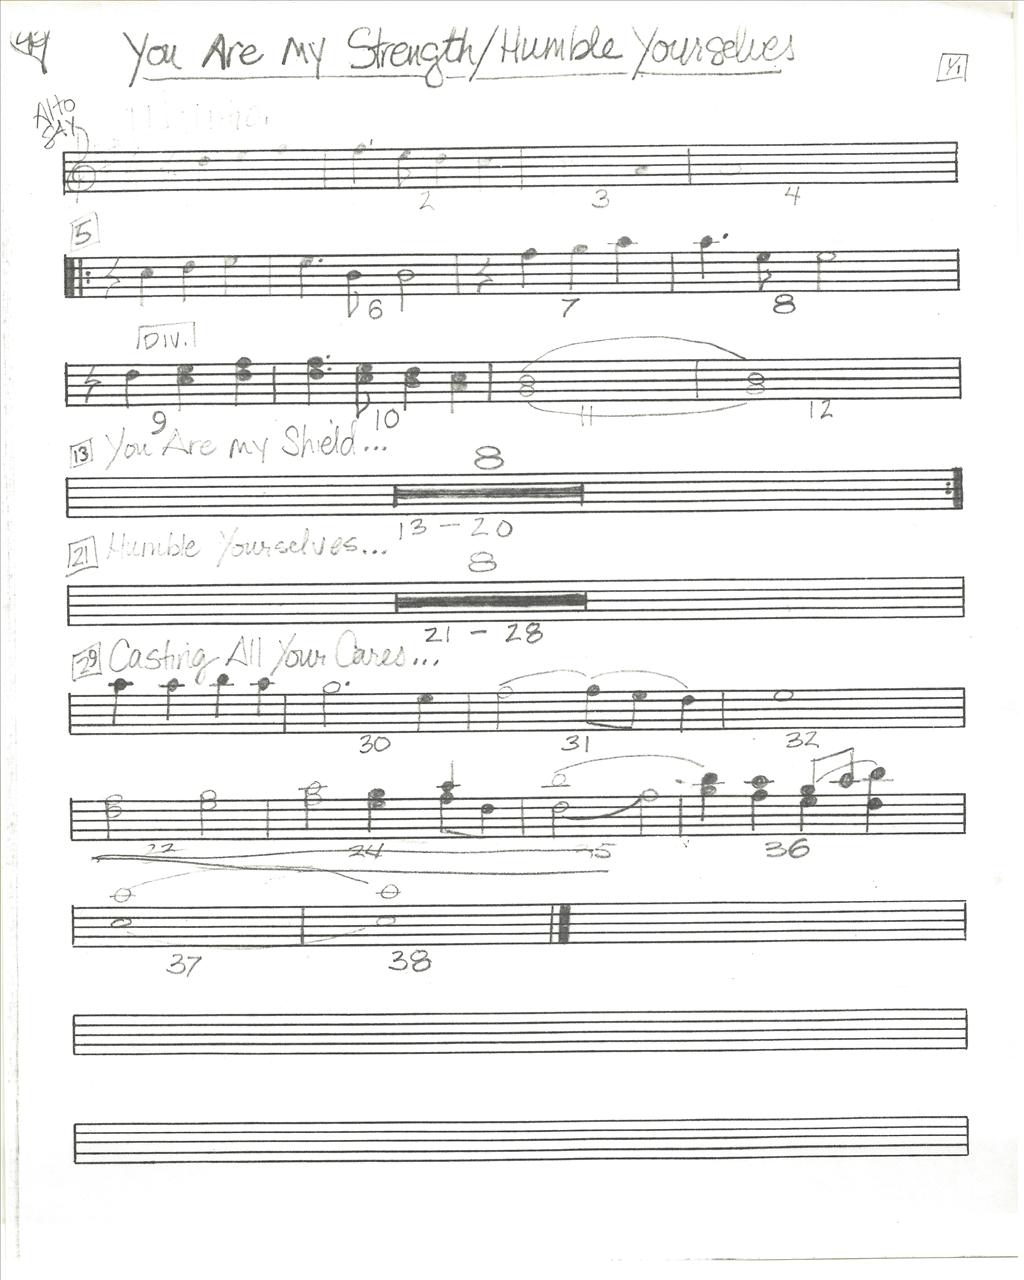 44
You Are My Strength/Humble Yourselves
1/1
Alto
SAX
2 3 4
5
6 7 8
DIV.
9 10 11 12
13 You Are my Shield...
8
13 - 20
21 Humble Yourselves...
8
21 - 28
29 Casting All Your Cares...
30 31 32
36
37 38